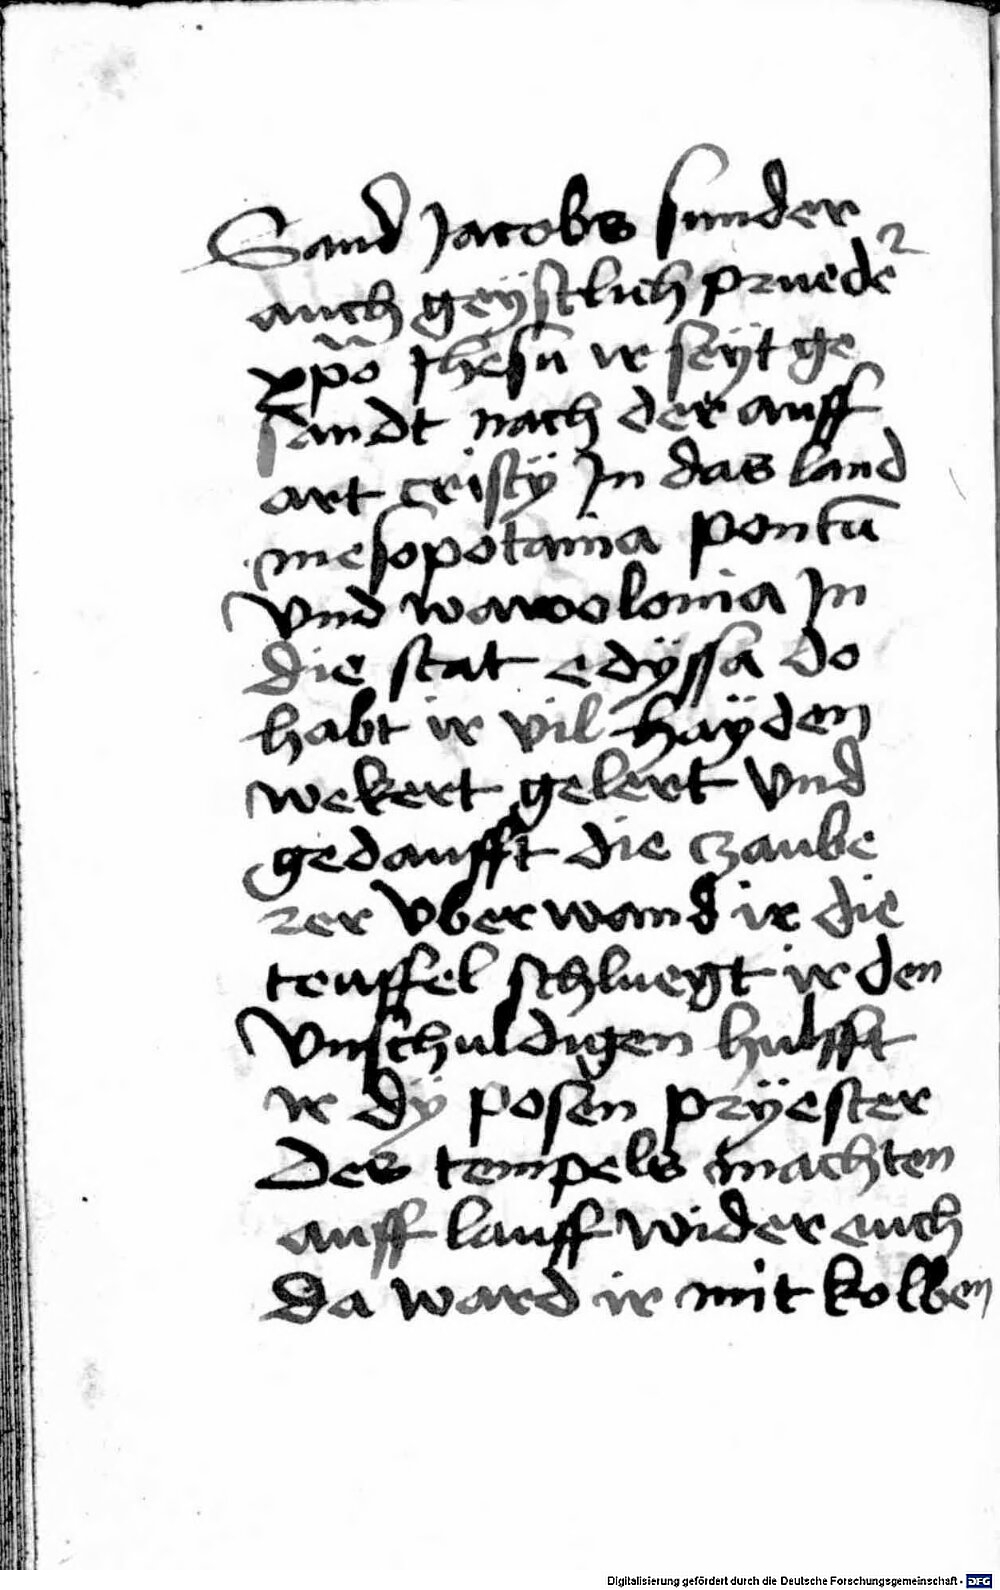 Sand Jacobs sunder
auch geÿstlich pruede²
xp̃o Jhesū ir seÿt ge
sandt nach der auff
art cristÿ In das land
mesopotamia pontū
vnd wawolonia In
die stat edÿssa do
habt ir vil haÿden
wekert gelert vnd
gedaufft die czaube
rer vberwand ir die
teuffel schluegt ir den
vnschuldigen hulfft
ir dÿ posen prÿester
des tempels machten
auff lauff wider euch
da ward ir mit kolben
Digitalisierung gefördert durch die Deutsche Forschungsgemeinschaft - DFG